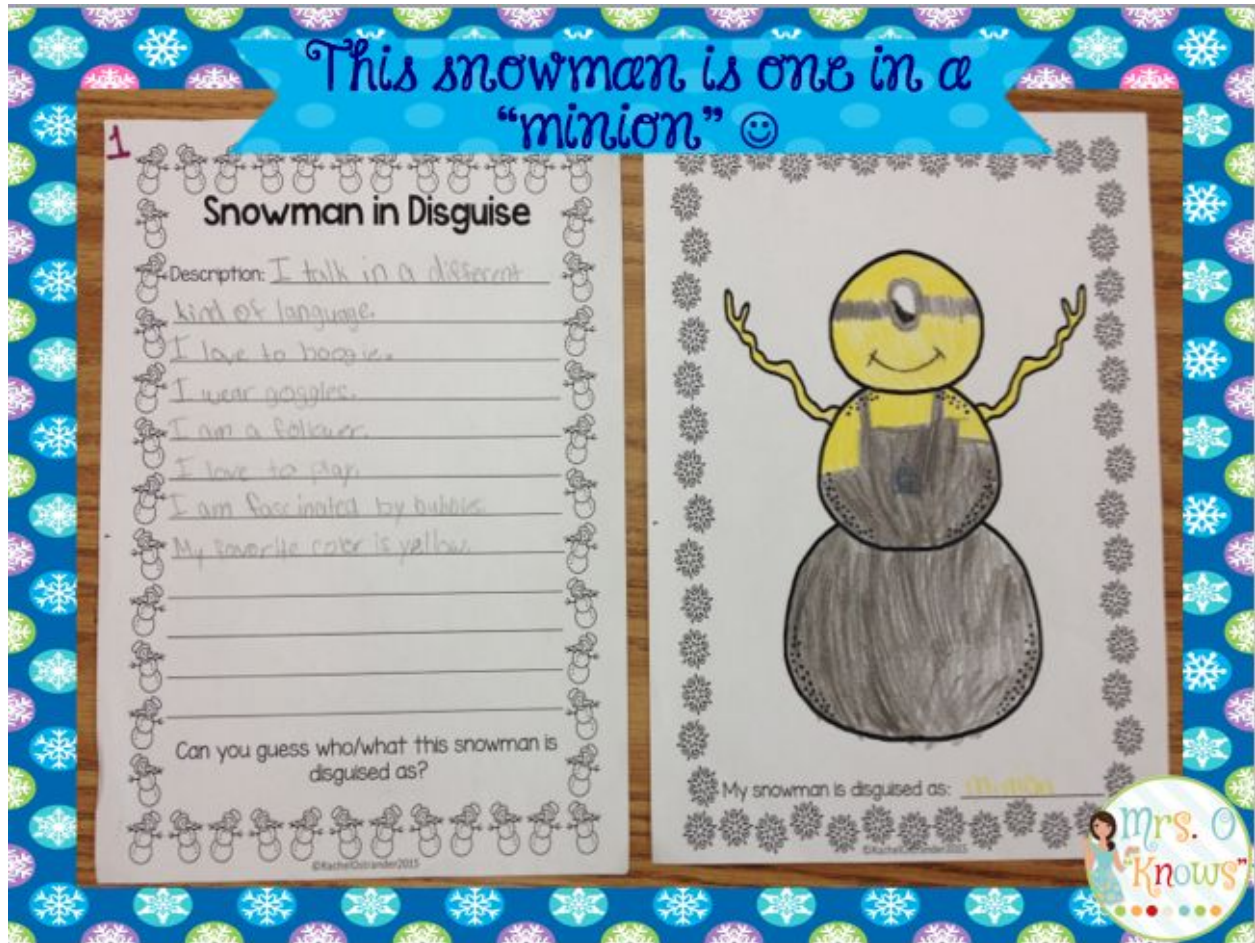 This snowman is one in a
"minion" ☺
1
Snowman in Disguise
Description: I talk in a different
kind of language.
I love to boogie.
I wear goggles.
I am a follower.
I love to play
I am fascinated by bubbles.
My favorite color is yellow.
Can you guess who/what this snowman is
disguised as?
©RachelOstrander2015
My snowman is disguised as: minion
©RachelOstrander2015
Mrs. O
"Knows"